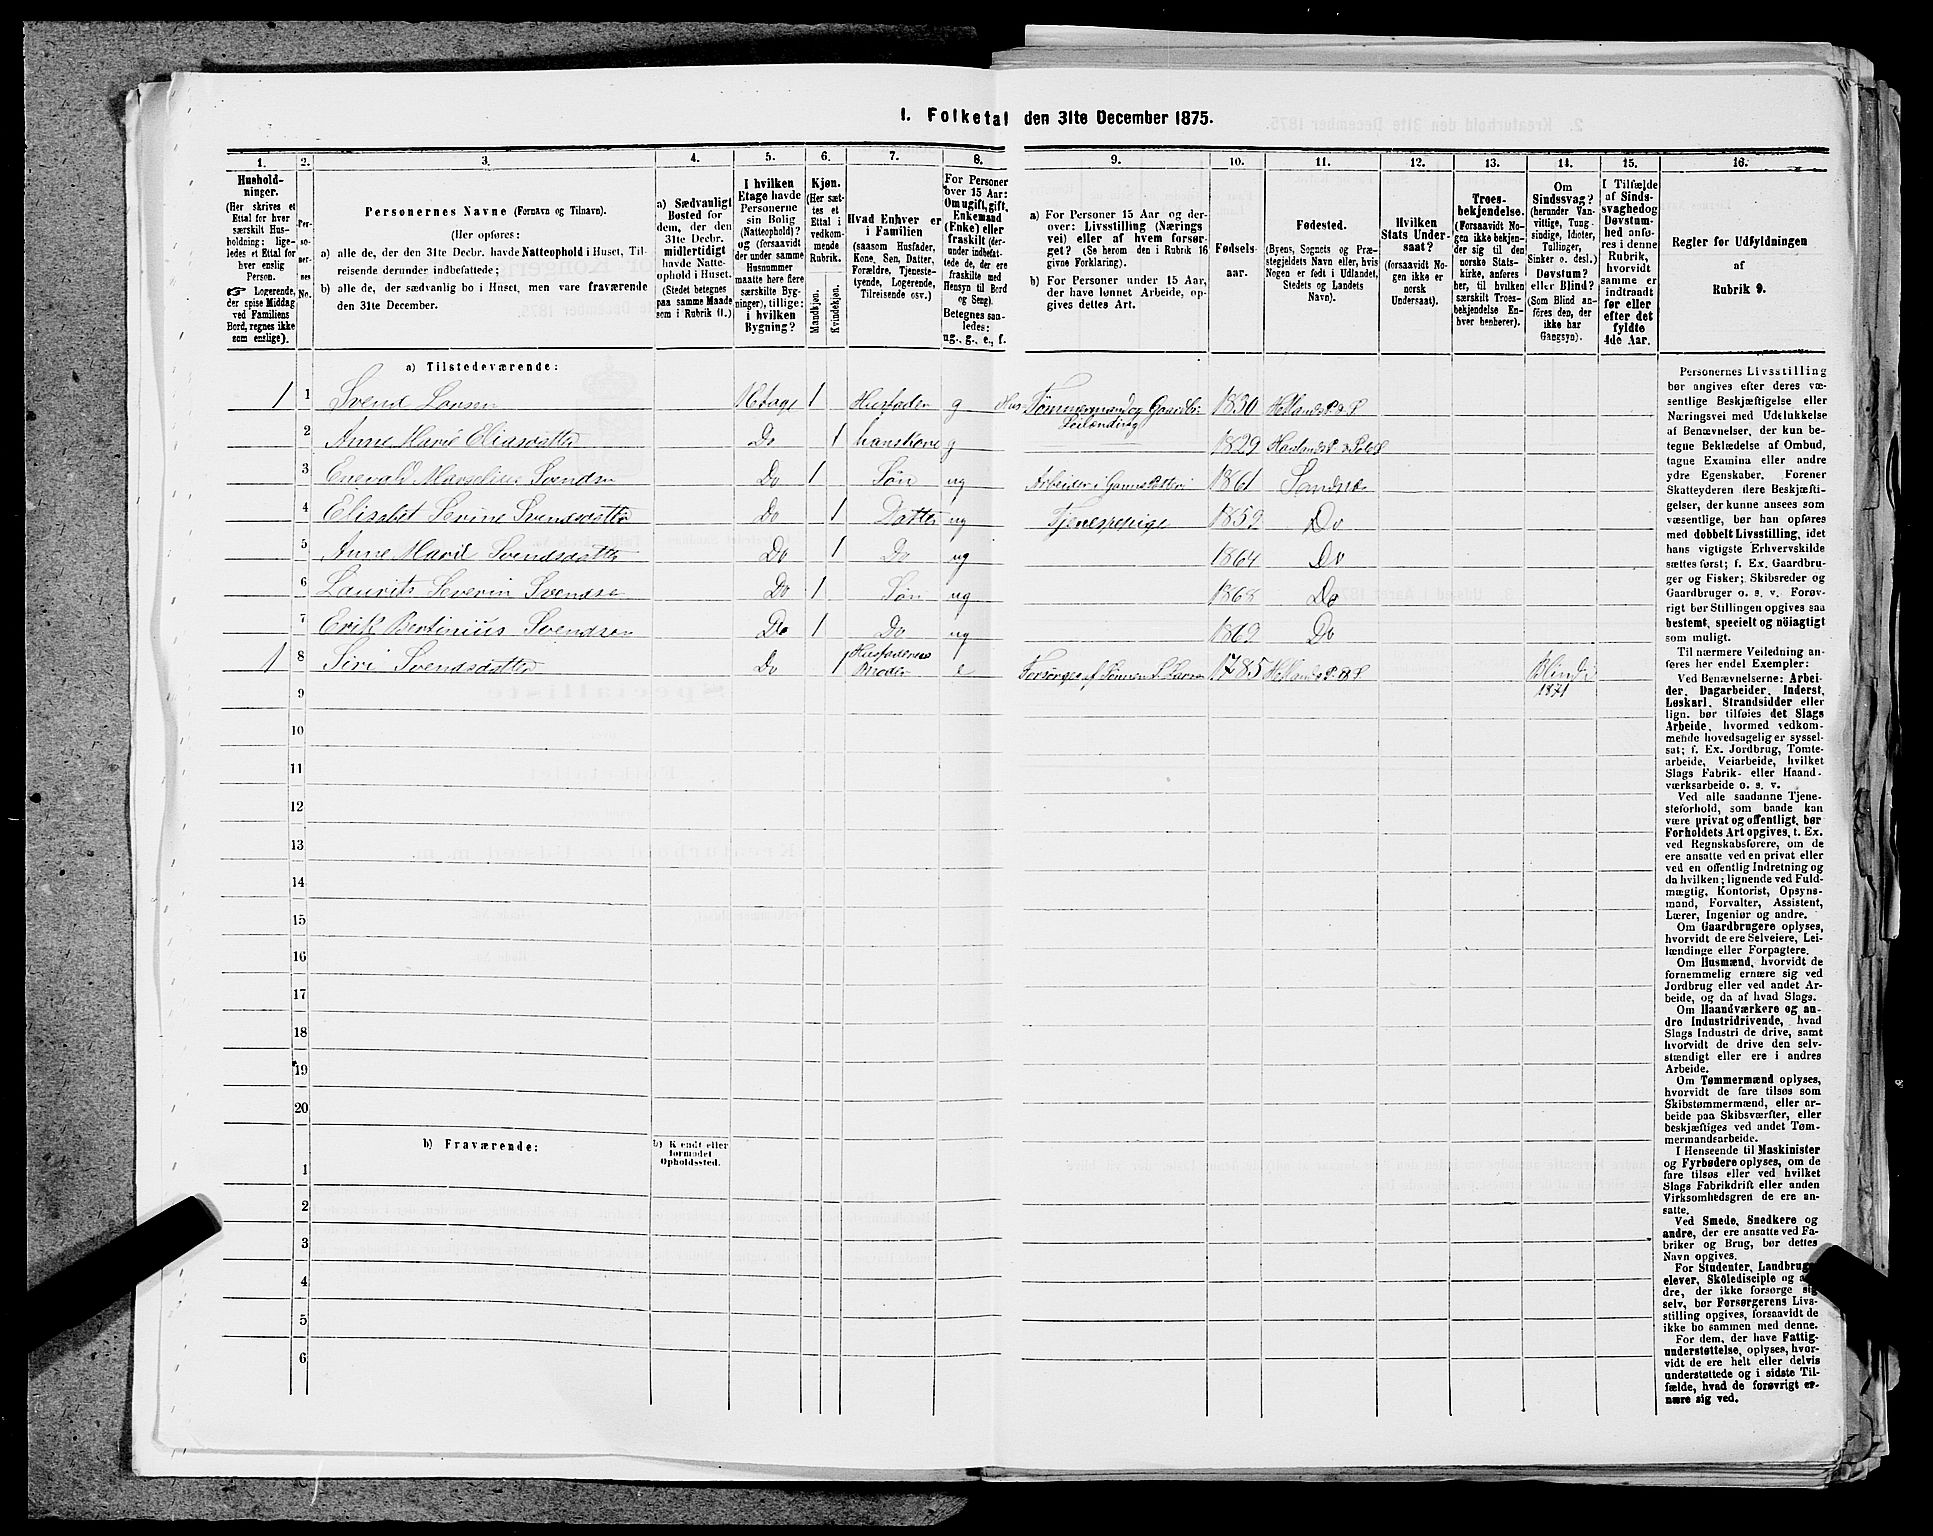 1. Folketal den 31te December 1875.
1. 2. 3. 4. 5. 6. 7. 8. 9. 10. 11. 12. 13. 14. 15. 16.
Husholdninger.
(Her skrives et
Ettal for hver
særskilt Husholdning:
ligeledes
et Ettal for
hver enslig
Person.
Logerende,
der spise Middag
ved Familiens
Bord, regnes ikke
som enslige).
Personernes No.
Personernes Navne (Fornavn og Tilnavn).
(Her opføres:
a) alle de, der den 31te Decbr. havde Natteophold i Huset, Tilreisende
derunder indbefattede;
b) alle de, der sædvanlig bo i Huset, men vare fraværende
den 31te December.
a) Sædvanligt
Bosted for
dem, der den
31te Decbr.
midlertidigt
havde Natteophold
i Huset.
(Stedet betegnes
paa samme Maade
som i Rubrik 11.)
I hvilken
Etage havde
Personerne
sin Bolig
(Natteophold)?
og (forsaavidt
der under samme
Husnummer
maatte høre flere
særskilte Bygninger),
tillige:
i hvilken
Bygning?
Kjøn.
(Her sættes
et
Ettal i
vedkommende
Rubrik.
Mandkjøn.
Kvindekjøn.
Hvad Enhver er
i Familien
(saasom Husfader,
Kone, Søn, Datter,
Forældre, Tjenestetyende,
Logerende,
Tilreisende osv.)
For Personer
over 15 Aar:
Om ugift, gift,
Enkemand
(Enke) eller
fraskilt (derunder
indbefattede
de, der ere
fraskilte med
Hensyn til Bord
og Seng).
Betegnes saaledes:
ug., g., e., f.
a) For Personer 15 Aar og derover:
Livsstilling (Næringsvei)
eller af hvem forsørget?
(Se herom den i Rubrik 16
givne Forklaring).
b) For Personer under 15 Aar,
der have lønnet Arbeide, opgives
dettes Art.
Fødselsaar.
Fødested.
(Byens, Sognets og Præstegjeldets
Navn eller, hvis
Nogen er født i Udlandet,
Stedets og Landets
Navn).
Hvilken
Stats Undersaat?
(forsaavidt Nogen
ikke er
norsk
Undersaat).
Troesbekjendelse.
(Forsaavidt Nogen
ikke bekjender
sig til den
norske Statskirke,
anføres
her, til hvilken
særskilt Troesbekjendelse
Enhver
henhører).
Om
Sindssvag?
(herunder Vanvittige,
Tungsindige,
Idioter,
Tullinger,
Sinker o. desl.)
Døvstum?
eller Blind?
(Som Blind anføres
den, der
ikke har
Gangsyn).
I Tilfælde
af Sindssvaghed
og
Døvstumhed
anføres
i denne
Rubrik,
hvorvidt
samme er
indtraadt
før eller
efter det
fyldte
4de Aar.
Regler for Udfyldningen
af
Rubrik 9.
a) Tilstedeværende:
1 1 Svend Larsen 1 Husfader g Tømmermand og Gaardbr. Leilænding 1830 Hetland P. & S.
2 Anne Marie Eliasdatter Do 1 hans Kone g 1829
3 Enevald Marselius Svendsen Do 1 Søn ug Arbeider i 1861 Sandnæs
4 Elisabet Serine Svendsdatter Do 1 Datter ug Tjenestepige 1859 Do
5 Anne Marie Svendsdatter Do 1 Do ug 1864 Do
6 Laurits Severin Svendsen Do 1 Søn ug 1868 Do
7 Erik Bertinius Svendsen Do 1 Do ug 1869 Do
1 8 Siri Svendsdatter Do 1 Husfaderens Moder e Forsørges af Sønnen S. Larsen 1785 Hetlands P. & S. Blind 1871
9
10
11
12
13
14
15
16
17
18
19
20
b) Fraværende:
b) Kjendt eller
formodet
Opholdssted.
1
2
3
4
5
6
Personernes Livsstilling
bør angives efter deres væsentlige
Beskjæftigelse eller
Næringsvei med Udelukkelse
af Benævnelser, der kun betegne
Beklædelse af Ombud,
tagne Examina eller andre
ydre Egenskaber. Forener
Skatteyderen flere Beskjæftigelser,
der kunne ansees som
væsentlige, bør han opføres
med dobbelt Livsstilling, idet
hans vigtigste Erhvervskilde
sættes først; f. Ex. Gaardbruger
og Fisker; Skibsreder og
Gaardbruger o. s. v. Forøvrigt
bør Stillingen opgives saa
bestemt, specielt og nöiagtigt
som muligt.
Til nærmere Veiledning anføres
her endel Exempler:
Ved Benævnelserne: Arbeider,
Dagarbeider, Inderst,
Løskarl, Strandsidder eller
lign. bør tilføies det Slags
Arbeide, hvormed vedkommende
hovedsagelig er sysselsat;
f. Ex. Jordbrug, Tomtearbeide,
Veiarbeide, hvilket
Slags Fabrik- eller Haandværksarbeide
o. s. v.
Ved alle saadanne Tjenesteforhold,
som baade kan
være privat og offentligt, bør
Forholdets Art opgives, t. Ex.
ved Regnskabsførere, om de
ere ansatte ved en privat eller
ved en offentlig Indretning og
da hvilken; lignende ved Fuldmægtig,
Kontorist, Opsynsmand,
Forvalter, Assistent,
Lærer, Ingeniør og andre.
Om Gaardbrugere oplyses,
hvorvidt de ere Selveiere, Leilændinge
eller Forpagtere.
Om Husmænd, hvorvidt de
fornemmelig ernære sig ved
Jordbrug eller ved andet Arbeide,
og da af hvad Slags.
Om Haandværkere og andre
Industridrivende, hvad
Slags Industri de drive, samt
hvorvidt de drive den selvstændigt
eller ere i andres
Arbeide.
Om Tømmermænd oplyses,
hvorvidt de fare tilsøs som
Skibstømmermænd, eller arbeide
paa Skibsværfter, eller
beskjæftiges ved andet Tømmermandsarbeide.
I Henseende til Maskinister
og Fyrbødere oplyses, om de
fare tilsøs eller ved hvilket
Slags Fabrikdrift eller anden
Virksomhedsgren de ere ansatte.
Ved Smede, Snedkere og
andre, der ere ansatte ved Fabriker
og Brug, bør dettes
Navn opgives.
For Studenter, Landbrugselever,
Skoledisciple og andre,
der ikke forsørge sig
selv, bør Forsørgerens Livsstilling
opgives, forsaavidt de
ikke bo sammen med denne.
For dem, der have Fattigunderstøttelse,
oplyses, hvorvidt
de ere helt eller delvis
understøttede og i sidste Tilfælde,
hvad de forøvrigt ernære
sig ved.